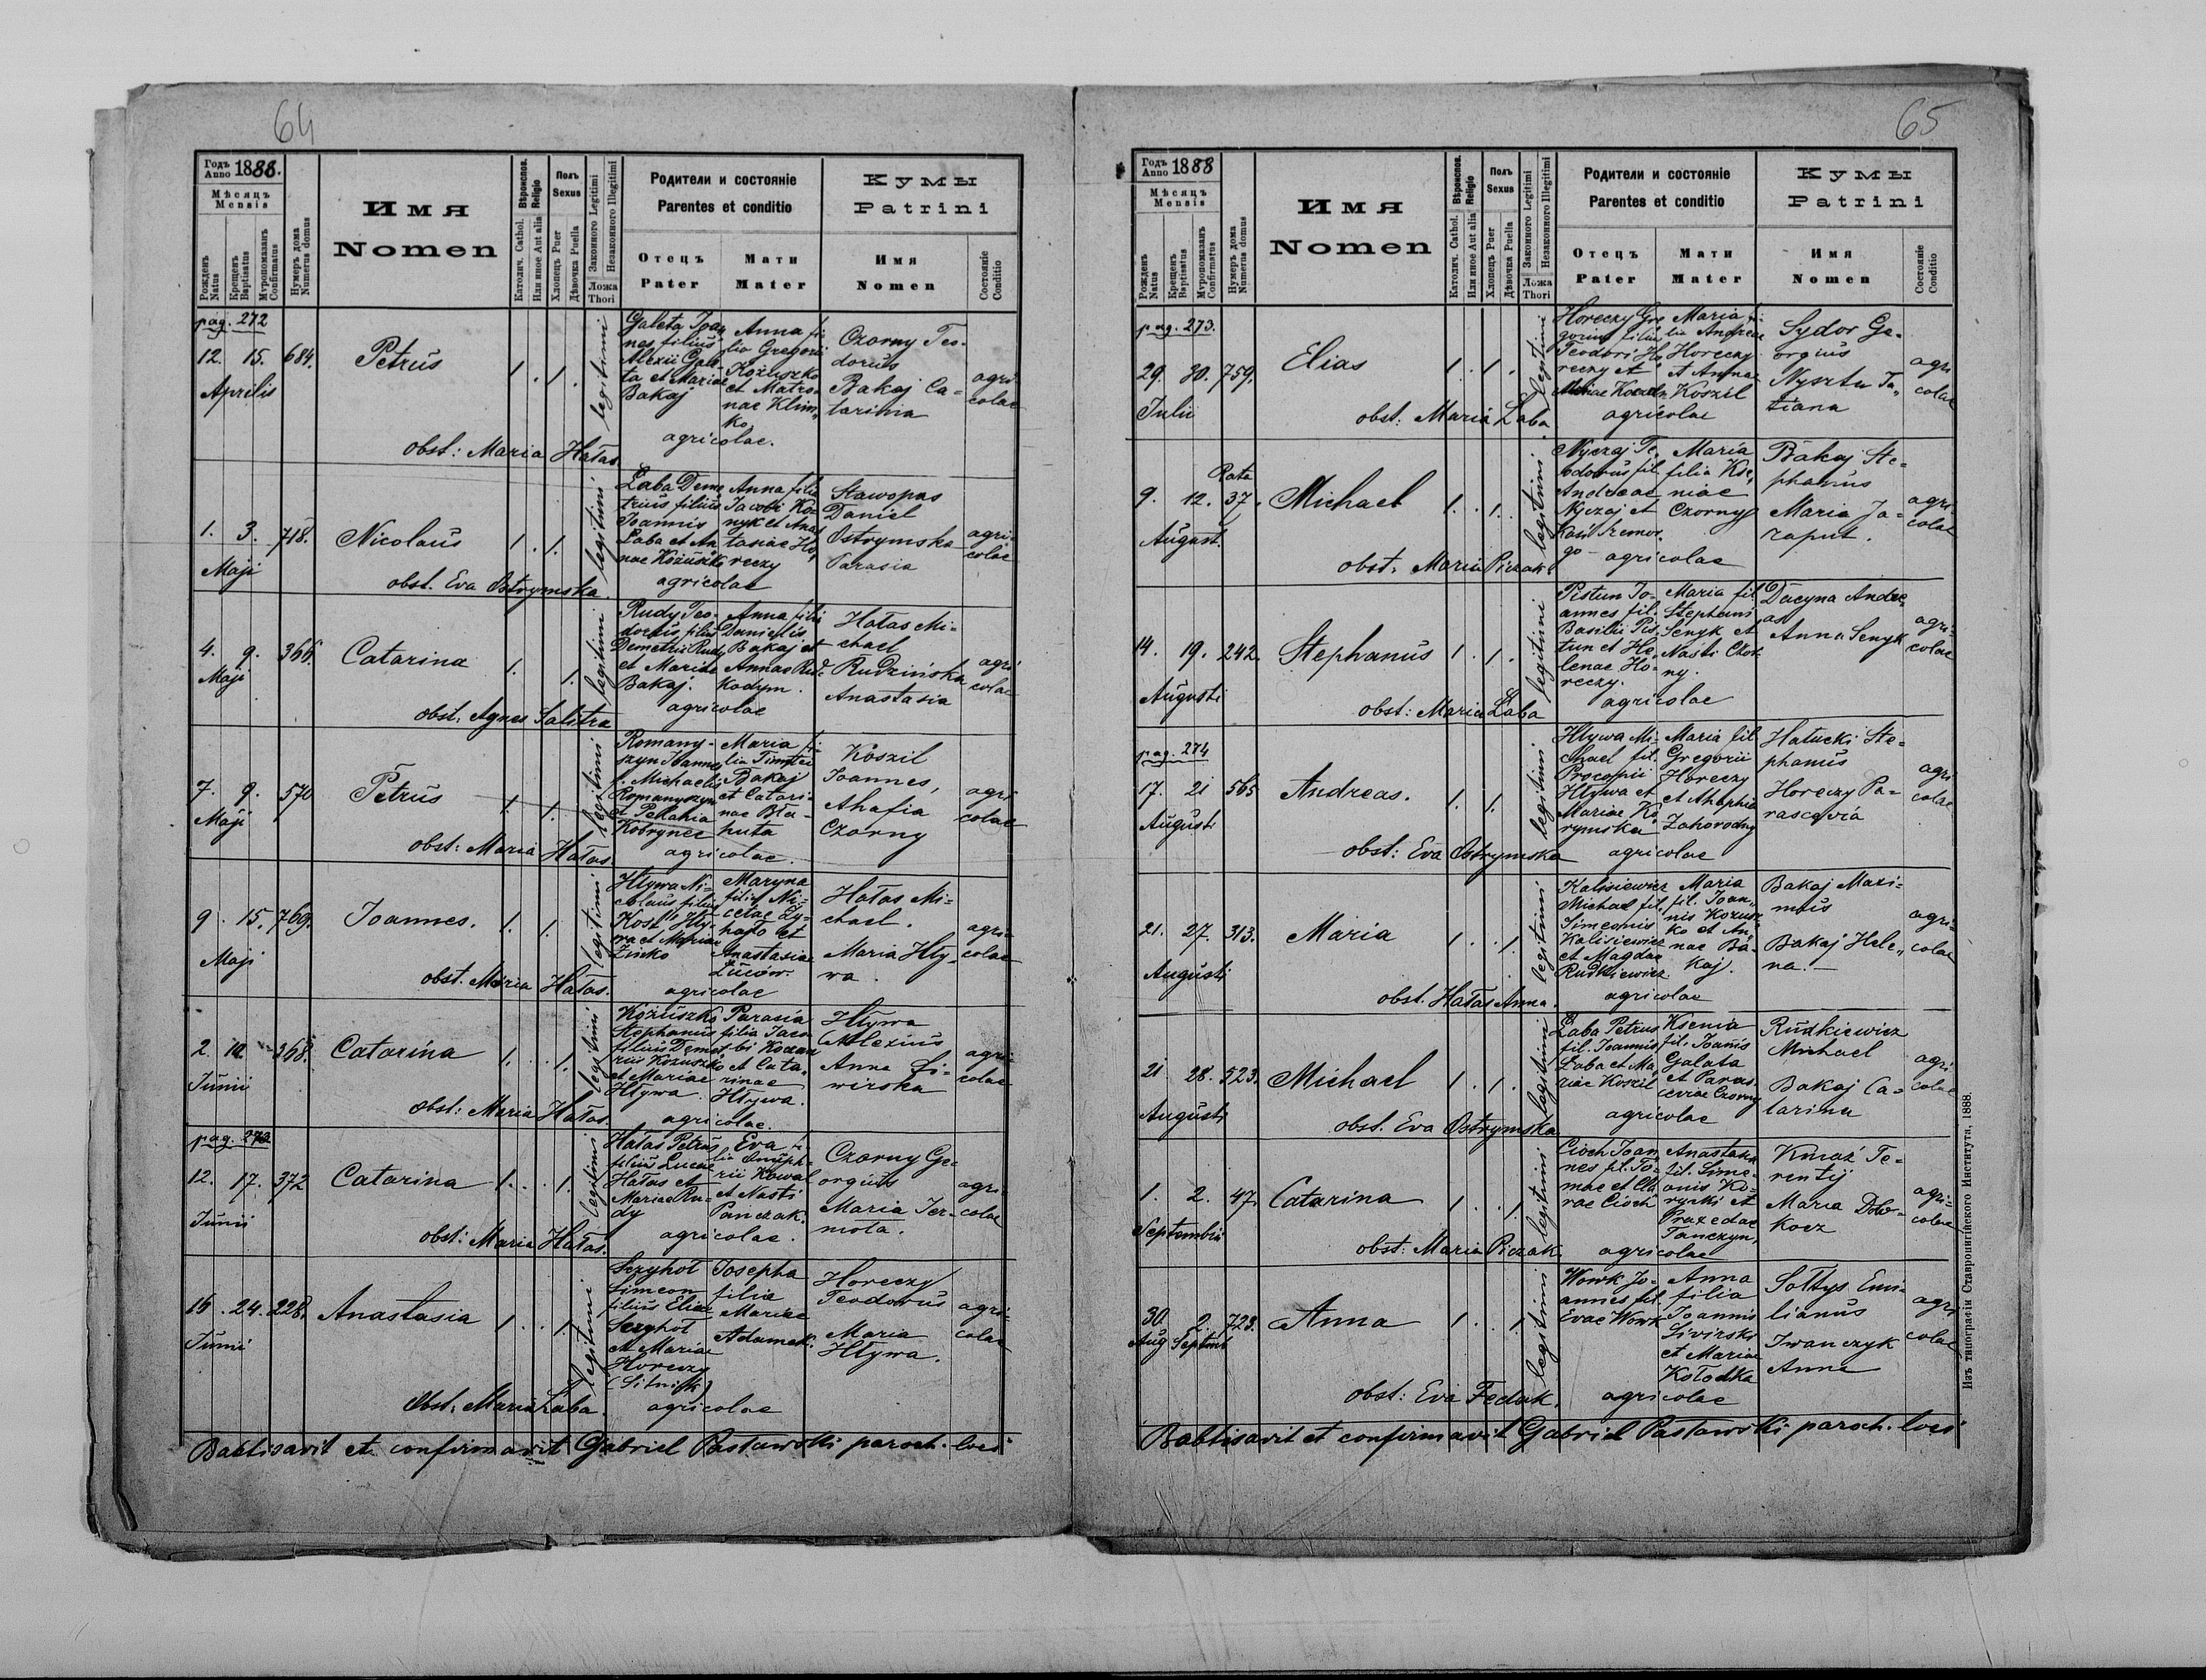 64
Годъ Anno 1888.
Мѣсяцъ Mensis
Рожденъ Natus
Крещенъ Baptisatus
Муропомазанъ Confirmatus
Нумеръ дома Numerus domus
Имя
Nomen
Вѣроиспов. Religio
Католич. Cathol.
Или иное Aut alia
Полъ Sexus
Хлопецъ Puer
Дѣвочка Puella
Законного Legitimi
Незаконного Illegitimi
Ложа Thori
Родители и состояніе
Parentes et conditio
Отецъ Pater
Мати Mater
Кумы
Patrini
Имя Nomen
Состояніе Conditio
pag. 272
12. 15. 684. Aprilis
Petrus
1. 1. legitimi
Galeta Joannes filius Alexii Galeta et Mariae Bakaj
Anna filia Gregorii Kożuszko et Matronae Klimko
agricolae.
Czorny Teodorus
Bakaj Catarina
agricolae
obst: Maria Hałas
1. 3. 718. Maji
Nicolaus
1. 1. legitimi
Łaba Demetrius filius Joannis Łaba et Annae Kożuszko
Anna filia Jacobi Konyk et Anastasiae Horeczy
agricolae
Stawopas Daniel
Ostrymska Parasia
agricolae
obst. Eva Ostrymska.
4. 9. 366. Maji
Catarina
1. 1. legitimi
Rudy Teodorus filius Demetrii Rudy et Mariae Bakaj.
Anna filia Danielis Bakaj et Annae Kadym.
agricolae
Hałas Michael
Rudzińska Anastasia
agricolae
obst. Agnes Salitra
7. 9. 570 Maji
Petrus
1. 1. legitimi
Romanyszyn Joannes f. Michaelis Romanyszyn et Pelahia Kobrynec
Maria filia Timotei Bakaj et Catarinae Błahuta
agricolae.
Koszil Joannes,
Ahafia Czorny
agricolae
obst: Maria Hałas.
9. 15. 769. Maji
Joannes.
1. 1. legitimi
Hływa Nicolaus filius Kost Hływa et Mariae Zinko
Maryna filia Nicetae et Anastasiae
agricolae
Hałas Michael.
Maria Hływa.
agricolae
obst. Maria Hałas.
2. 368. Junii
Catarina
1. 1. legitimi
Kożuszko Stephanus filius Demetrii Kożuszko et Mariae Hływa
Parasia filia Jacobi et Catarinae Hływa.
agricolae.
Hływa Alexius
Anna
agricolae
obst: Maria Hałas.
pag.
12. 17. 372 Junii
Catarina
1. 1. legitimi
Hałas Petrus filius Lucae Hałas et Mariae Rudy
Eva filia Onuphrii Kowal et Nasti Panczak.
agricolae.
Czorny Georgius
Maria
agricolae
obst: Maria Hałas.
15. 24. 228. Junii
Anastasia
1. 1. legitimi
Simeon filius Eliae et Mariae Horeczy (Sitnik)
Josepha filia Mariae Adamek.
agricolae
Horeczy Teodorus
Maria Hływa.
agricolae
Obst: Maria Łaba.
Babtisavit et confirmavit Gabriel Pasławski paroch. loci
65
Годъ Anno 1888
Мѣсяцъ Mensis
Рожденъ Natus
Крещенъ Baptisatus
Муропомазанъ Confirmatus
Нумеръ дома Numerus domus
Имя
Nomen
Вѣроиспов. Religio
Католич. Cathol.
Или иное Aut alia
Полъ Sexus
Хлопецъ Puer
Дѣвочка Puella
Законного Legitimi
Незаконного Illegitimi
Ложа Thori
Родители и состояніе
Parentes et conditio
Отецъ Pater
Мати Mater
Кумы
Patrini
Имя Nomen
Состояніе Conditio
pag. 273.
29. 30. 759. Julii
Elias
1. 1. legitimi
Horeczy Gregorius filius Teodori Horeczy et
Maria filia Andreae Horeczy et Annae Koszil
agricolae
Sydor Georgius
Nysztu Tatiana
agricolae
obst: Maria Łaba.
9. 12. 37. August.
Michael
1. 1. legitimi
Nyczaj Teodorus fil. Andreae Nyczaj et
Maria filia Kseniae Czorny
agricolae
Bakaj Stephanus
Maria Jazaput.
agricolae
obst: Maria Piczak.
14. 19. 242. Augusti
Stephanus
1. 1. legitimi
Pistun Joannes fil. Basilii Pistun et Helenae Horeczy.
Maria fil. Stephani Senyk et Nasti Czorny.
agricolae
Dacyna Andreas
Anna Senyk
agricolae
obst: Maria Łaba
pag. 274
17. 21 565 Augusti
Andreas.
1. 1. legitimi
Hływa Michael fil. Procopii Hływa et Mariae Korymska
Maria fil. Gregorii Horeczy et Ahaphia Zahorodny
agricolae
Hałucki Stephanus
Horeczy Parascevia
agricolae
obst: Eva Ostrymska
21. 27. 313. Augusti
Maria
1. 1. legitimi
Kalisiewicz Michael fil. Simeonis Kalisiewicz et Magdae Rudkiewicz.
Maria fil. Joannis Kożuszko et Annae Bakaj.
agricolae
Bakaj Maximus
Bakaj Helena.
agricolae
obst. Hałas Anna.
21 28. 523. Augusti
Michael
1. 1. legitimi
Łaba Petrus fil. Joannis Łaba et Mariae Koszil
Ksenia fil. Joannis Galata et Parasceviae Czorny
agricolae
Rudkiewicz Michael
Bakaj Catarina
agricolae
obst. Eva Ostrymska
1. 2. 47. Septembris
Catarina
1. 1. legitimi
Cioch Joannes fil. Tomae et Clarae Cioch
Anastasia fil. Simeonis et Praxedae
agricolae
Kniaź Terentij
Maria
agricolae
obst: Maria Piczak
30. Aug 2. Septemb 723.
Anna
1. 1. legitimi
Wowk Joannes fil. Evae Wowk
Anna filia Joannis et Mariae Kołodka
agricolae
Sołtys Emilianus
Iwanczyk Anna
agricolae
obst: Eva Fedak.
Babtisavit et confirmavit Gabriel Pasławski paroch. loci
Изъ типографіи Ставропигійского Института, 1888.